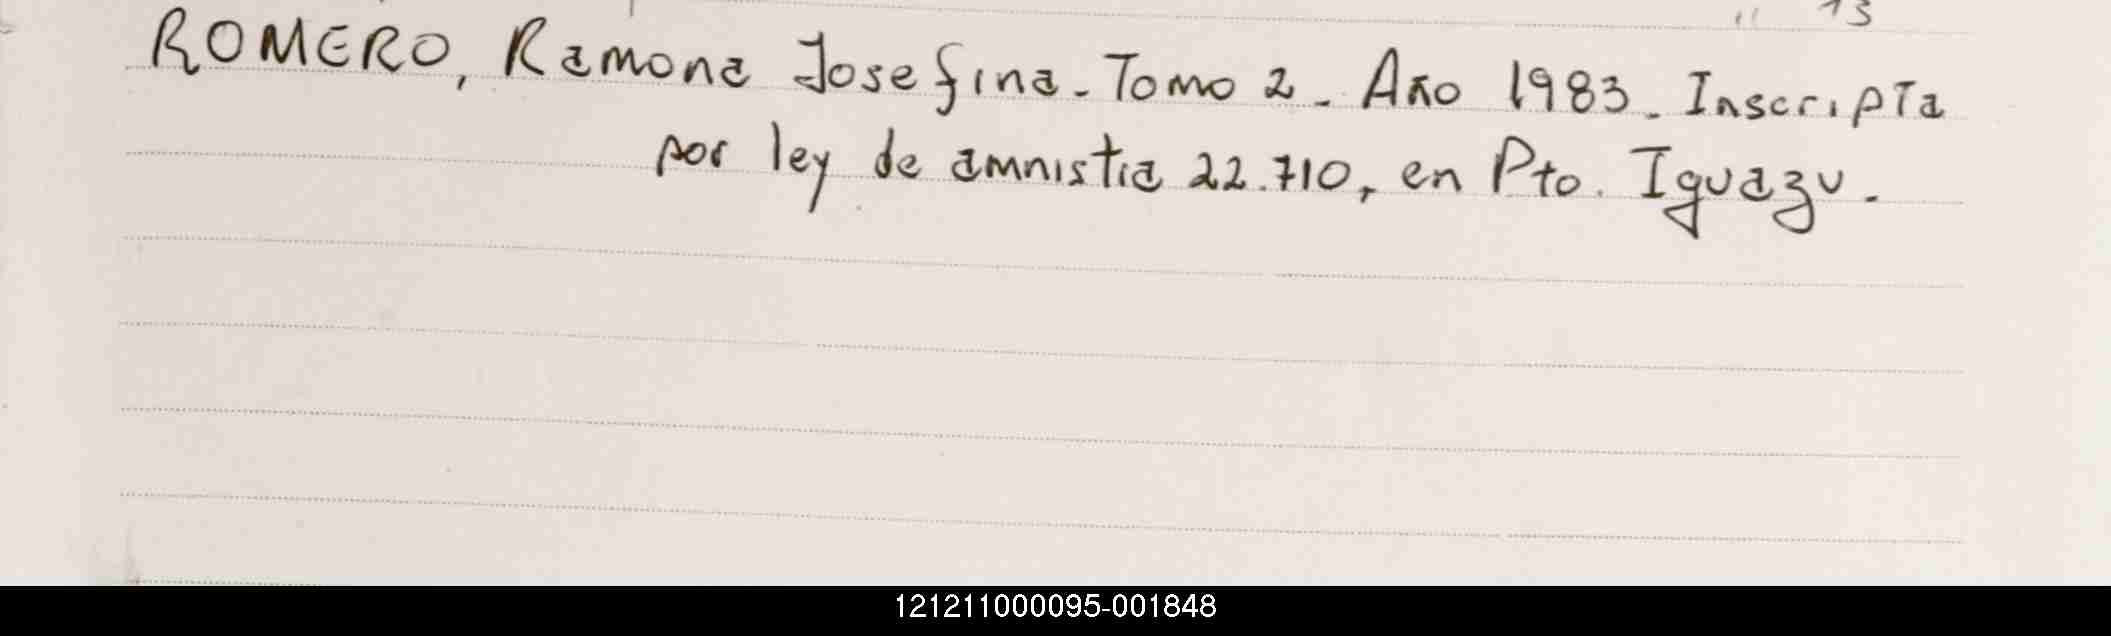 " 13
ROMERO, Ramona Josefina - Tomo 2 - Año 1983 - Inscripta
por ley de amnistia 22.710, en Pto. Iguazu.
121211000095-001848